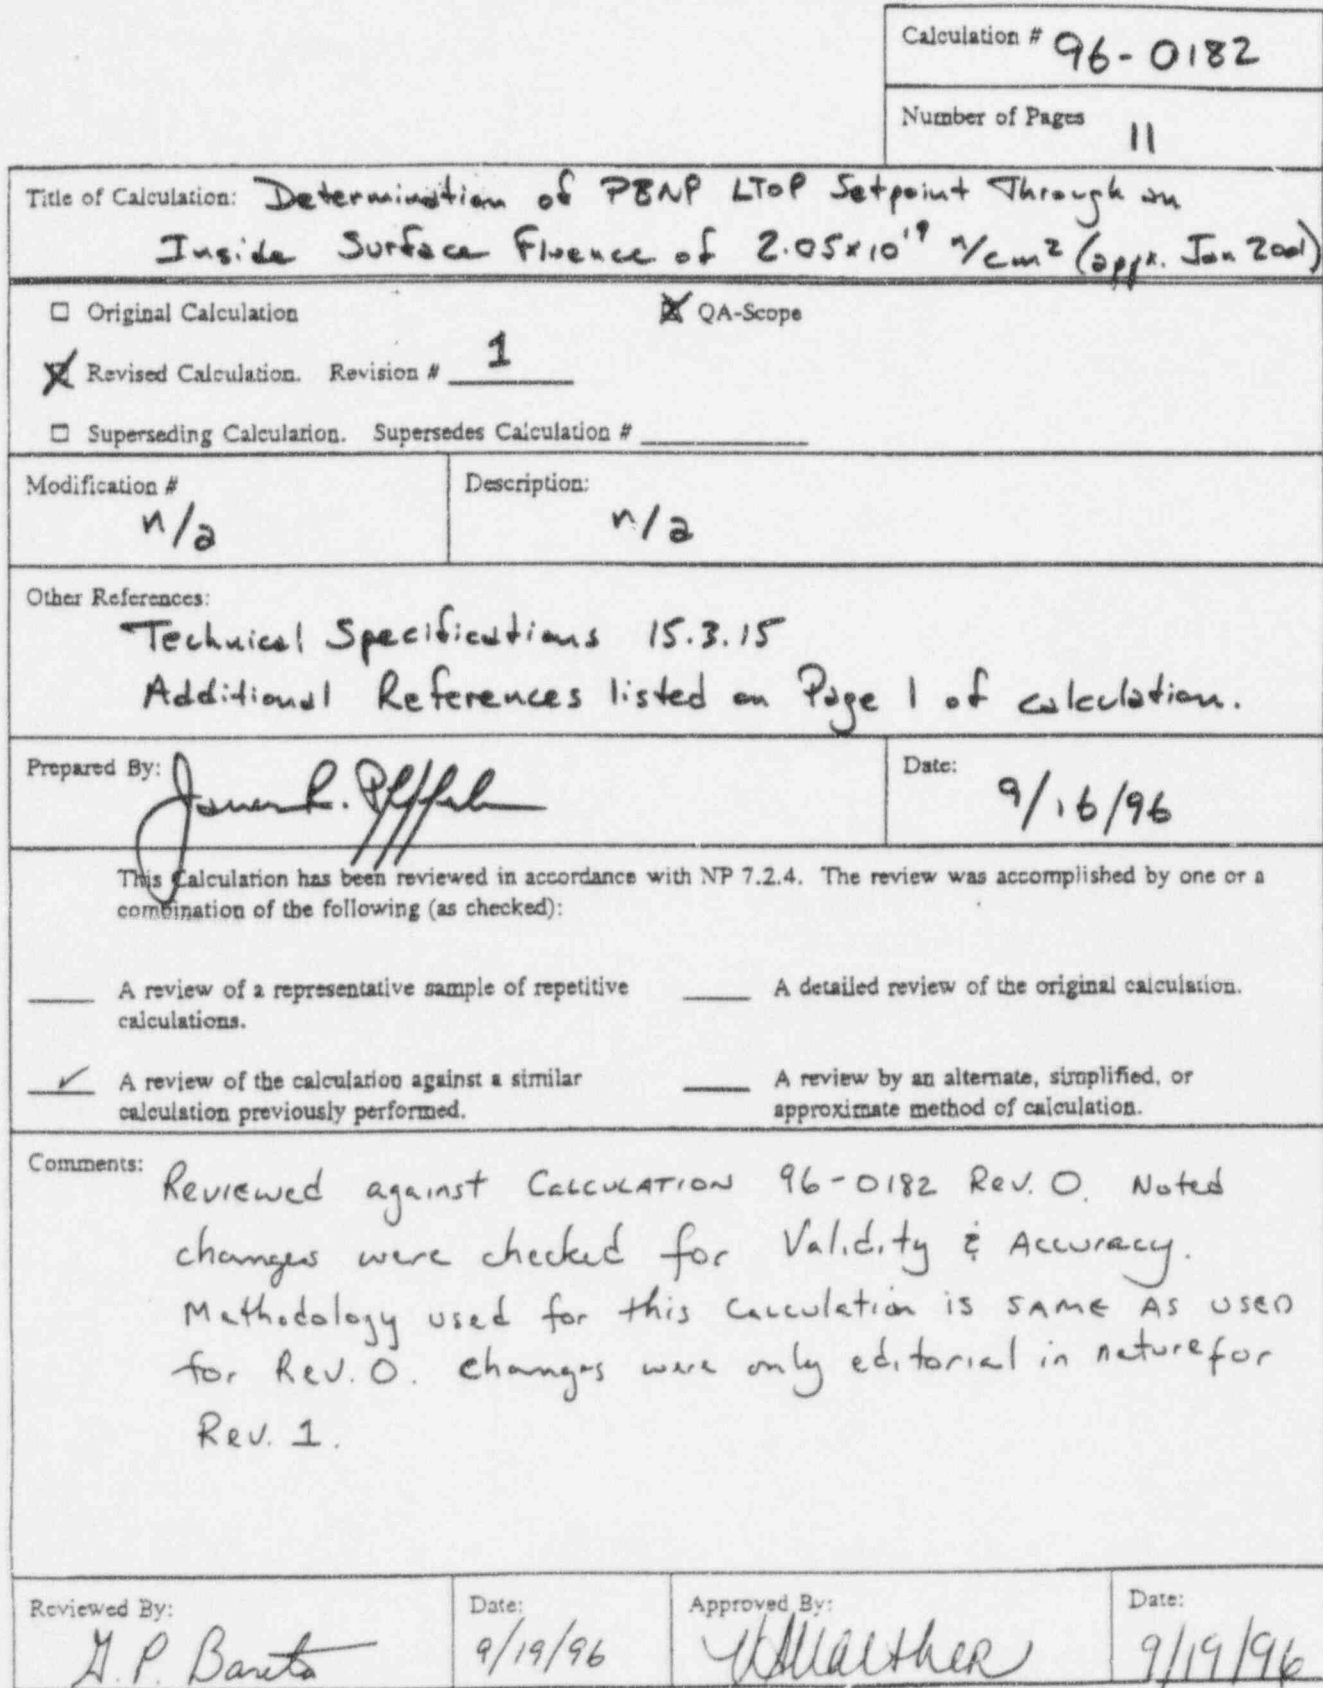 Calculation # 96-0182
Number of Pages 11
Title of Calculation: Determination of PBNP LTOP Setpoint Through an
Inside Surface Fluence of 2.05x10¹⁹ n/cm² (appx. Jan 2001)
☐ Original Calculation ☒ QA-Scope
☒ Revised Calculation. Revision # 1
☐ Superseding Calculation. Supersedes Calculation #
Modification # Description:
n/a n/a
Other References:
Technical Specifications 15.3.15
Additional References listed on Page 1 of calculation.
Prepared By: Date:
9/16/96
This Calculation has been reviewed in accordance with NP 7.2.4. The review was accomplished by one or a
combination of the following (as checked):
A review of a representative sample of repetitive A detailed review of the original calculation.
calculations.
✓ A review of the calculation against a similar A review by an alternate, simplified, or
calculation previously performed. approximate method of calculation.
Comments: Reviewed against CALCULATION 96-0182 Rev. 0. Noted
changes were checked for Validity & Accuracy.
Methodology used for this Calculation is SAME AS USED
for Rev. 0. Changes were only editorial in nature for
Rev. 1.
Reviewed By: Date: Approved By: Date:
9/19/96 9/19/96